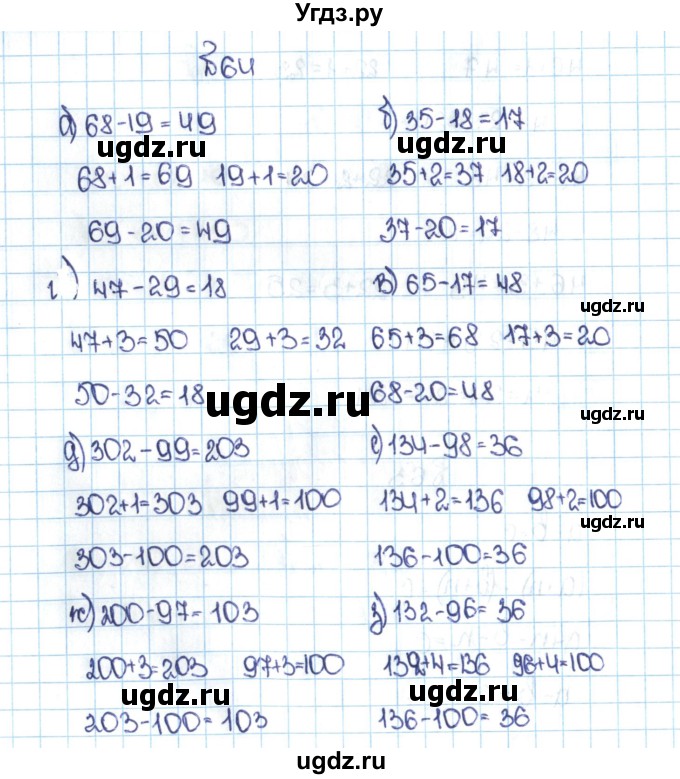 Угдз.ру
№64
а) 68-19=49 б) 35-18=17
ugdz.ru ugdz.ru
68+1=69 19+1=20 35+2=37 18+2=20
69-20=49 37-20=17
г) 47-29=18 в) 65-17=48
47+3=50 29+3=32 65+3=68 17+3=20
50-32=18 68-20=48
ugdz.ru ugdz.ru
д) 302-99=203 е) 134-98=36
302+1=303 99+1=100 134+2=136 98+2=100
ugdz.ru
303-100=203 136-100=36
ж) 200-97=103 з) 132-96=36
200+3=203 97+3=100 132+4=136 96+4=100
ugdz.ru ugdz.ru
203-100=103 136-100=36
ugdz.ru